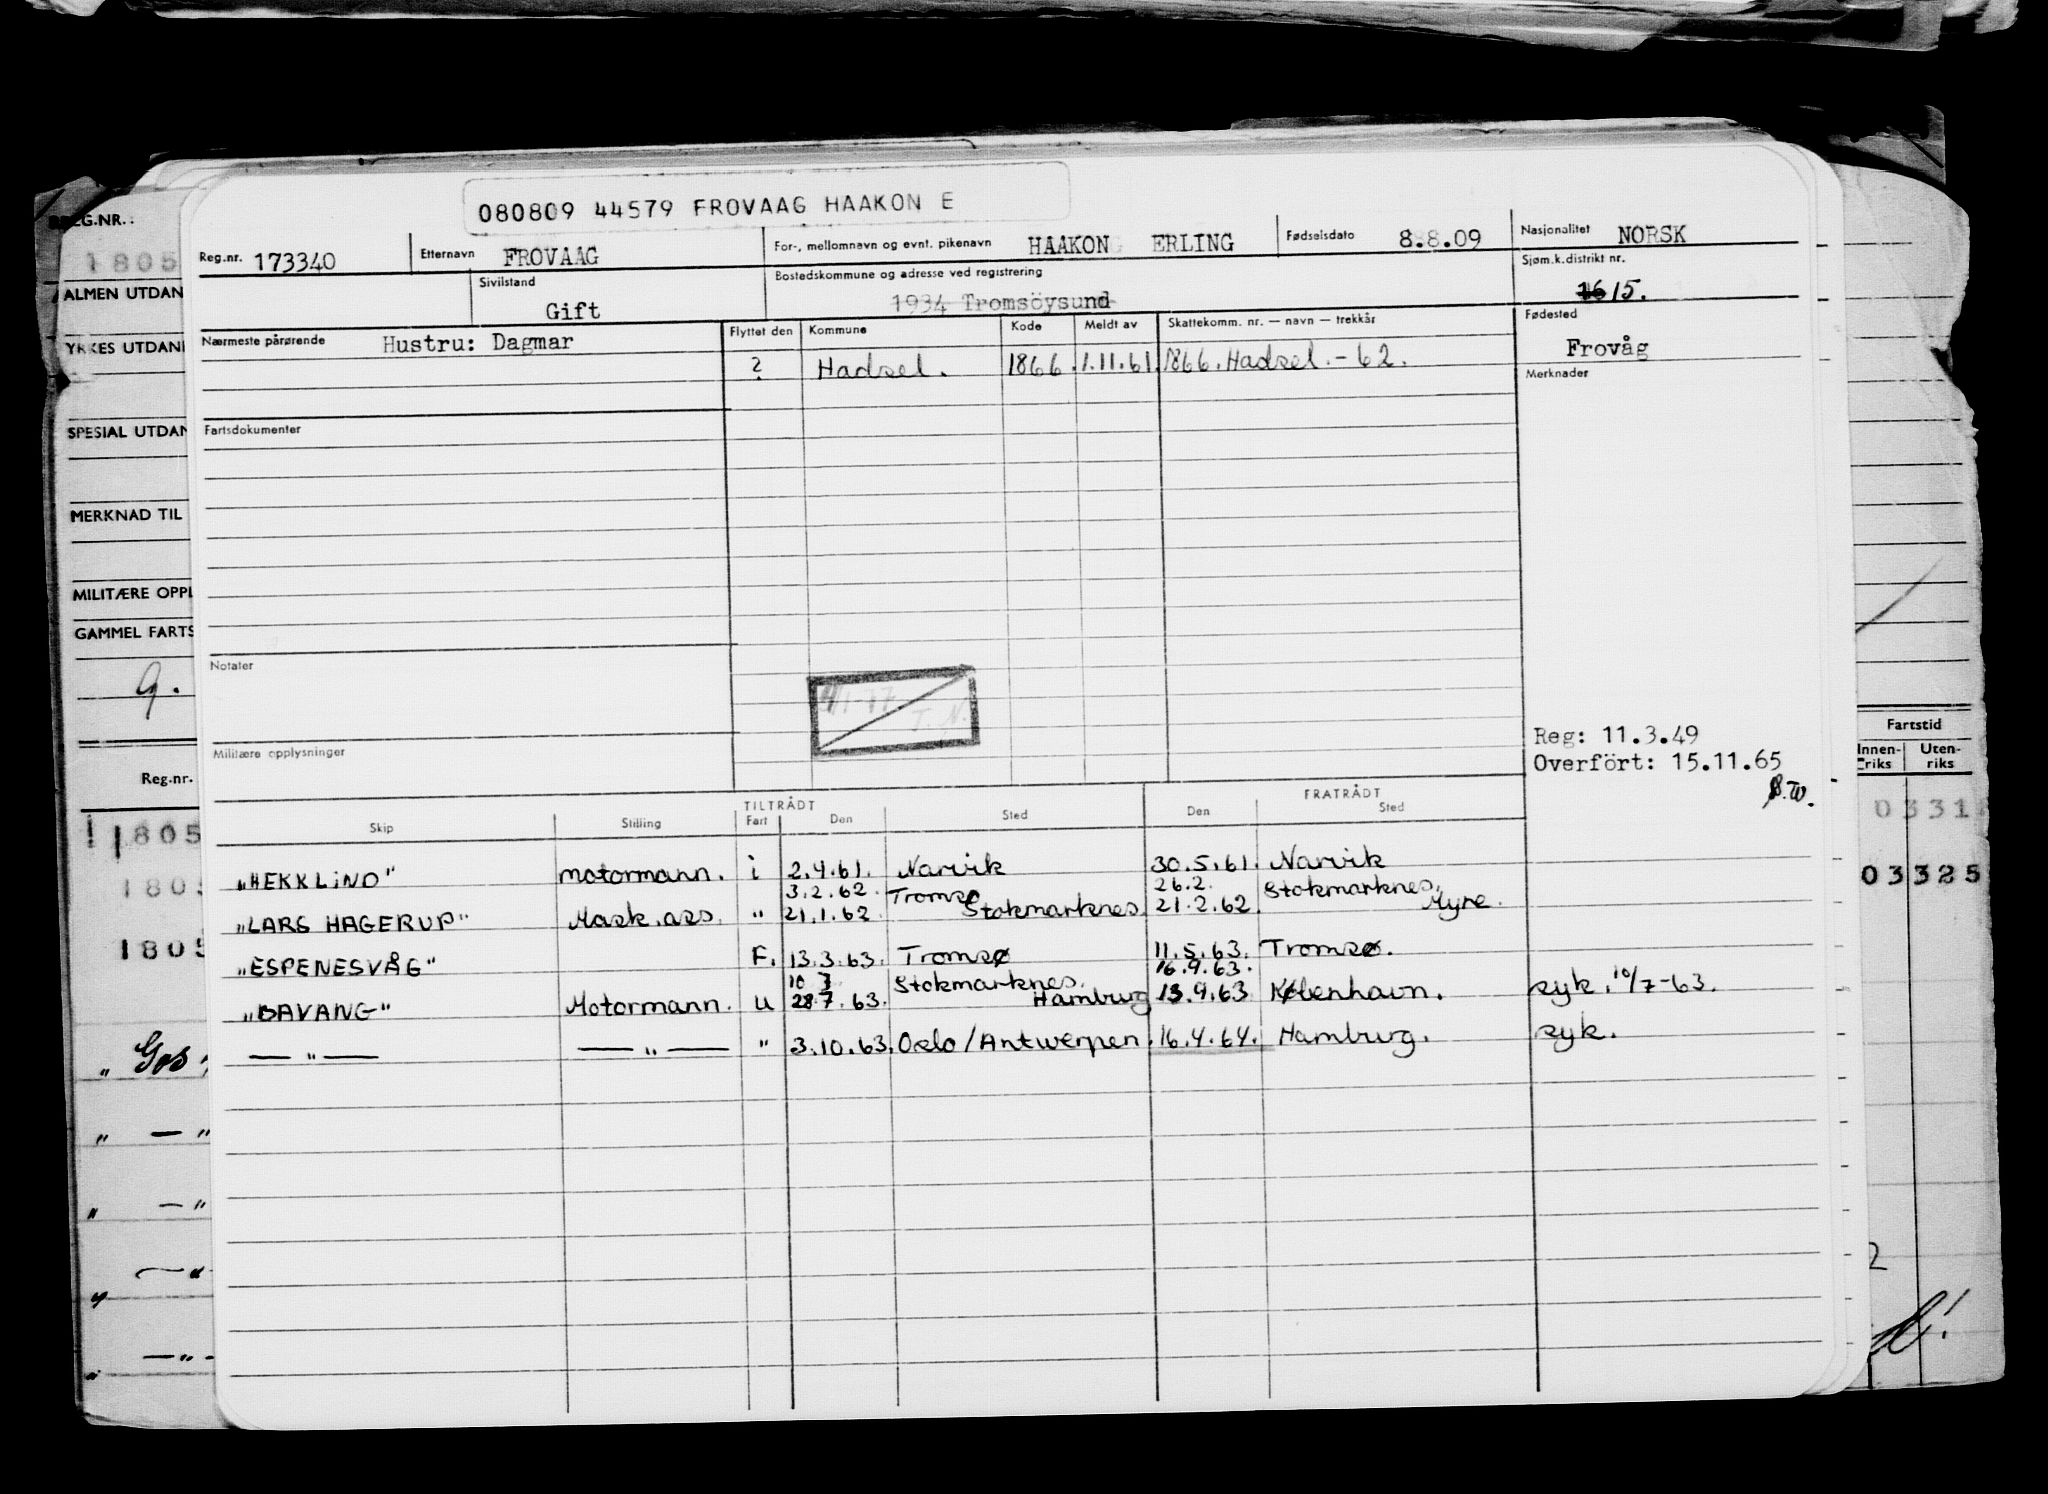 080809 44579 FROVAAG HAAKON E
Reg.nr. 173340 Etternavn FROVAAG For-, mellomnavn og evnt. pikenavn HAAKON ERLING Fødselsdato 8.8.09 Nasjonalitet NORSK
Sivilstand Gift Bostedskommune og adresse ved registrering 1934 Tromsöysund Sjøm.k.distrikt nr. 16 15.
Nærmeste pårørende Hustru: Dagmar Flyttet den Kommune Kode Meldt av Skattekomm. nr. — navn — trekkår Fødested
? Hadsel. 1866. 1.11.61. 1866. Hadsel. - 62. Frovåg
Merknader
Fartsdokumenter
Notater
T. N.
Militære opplysninger
Reg: 11.3.49
Overfört: 15.11.65
TILTRÅDT FRATRÅDT
Skip Stilling Fart Den Sted Den Sted
"HEKKLIND" motormann. i 2.4.61. Narvik 30.5.61. Narvik
3.2.62. Tromsø 26.2. Stokmarknes.
"LARS HAGERUP" Mask.ass. " 21.1.62 Stokmarknes. 21.2.62. Myre.
"ESPENESVÅG" F. 13.3.63. Tromsø 11.5.63. Tromsø.
10 7 Stokmarknes. 16.9.63.
"DAVANG" Motormann. u 28.7.63. Hamburg 13.9.63 København. syk. 10/7-63.
— " — — " — " 3.10.63. Oslo/Antwerpen. 16.4.64. Hamburg. syk.
REG.NR.:
1805
ALMEN UTDAN
YRKES UTDAN
SPESIAL UTDAN
MERKNAD TIL
MILITÆRE OPPL
GAMMEL FARTS
9.
Reg.nr.
1805
1805
1805
" Gos
" — "
" — "
— "
— " -
Fartstid
Innen-riks Uten-riks
0331
03325
2